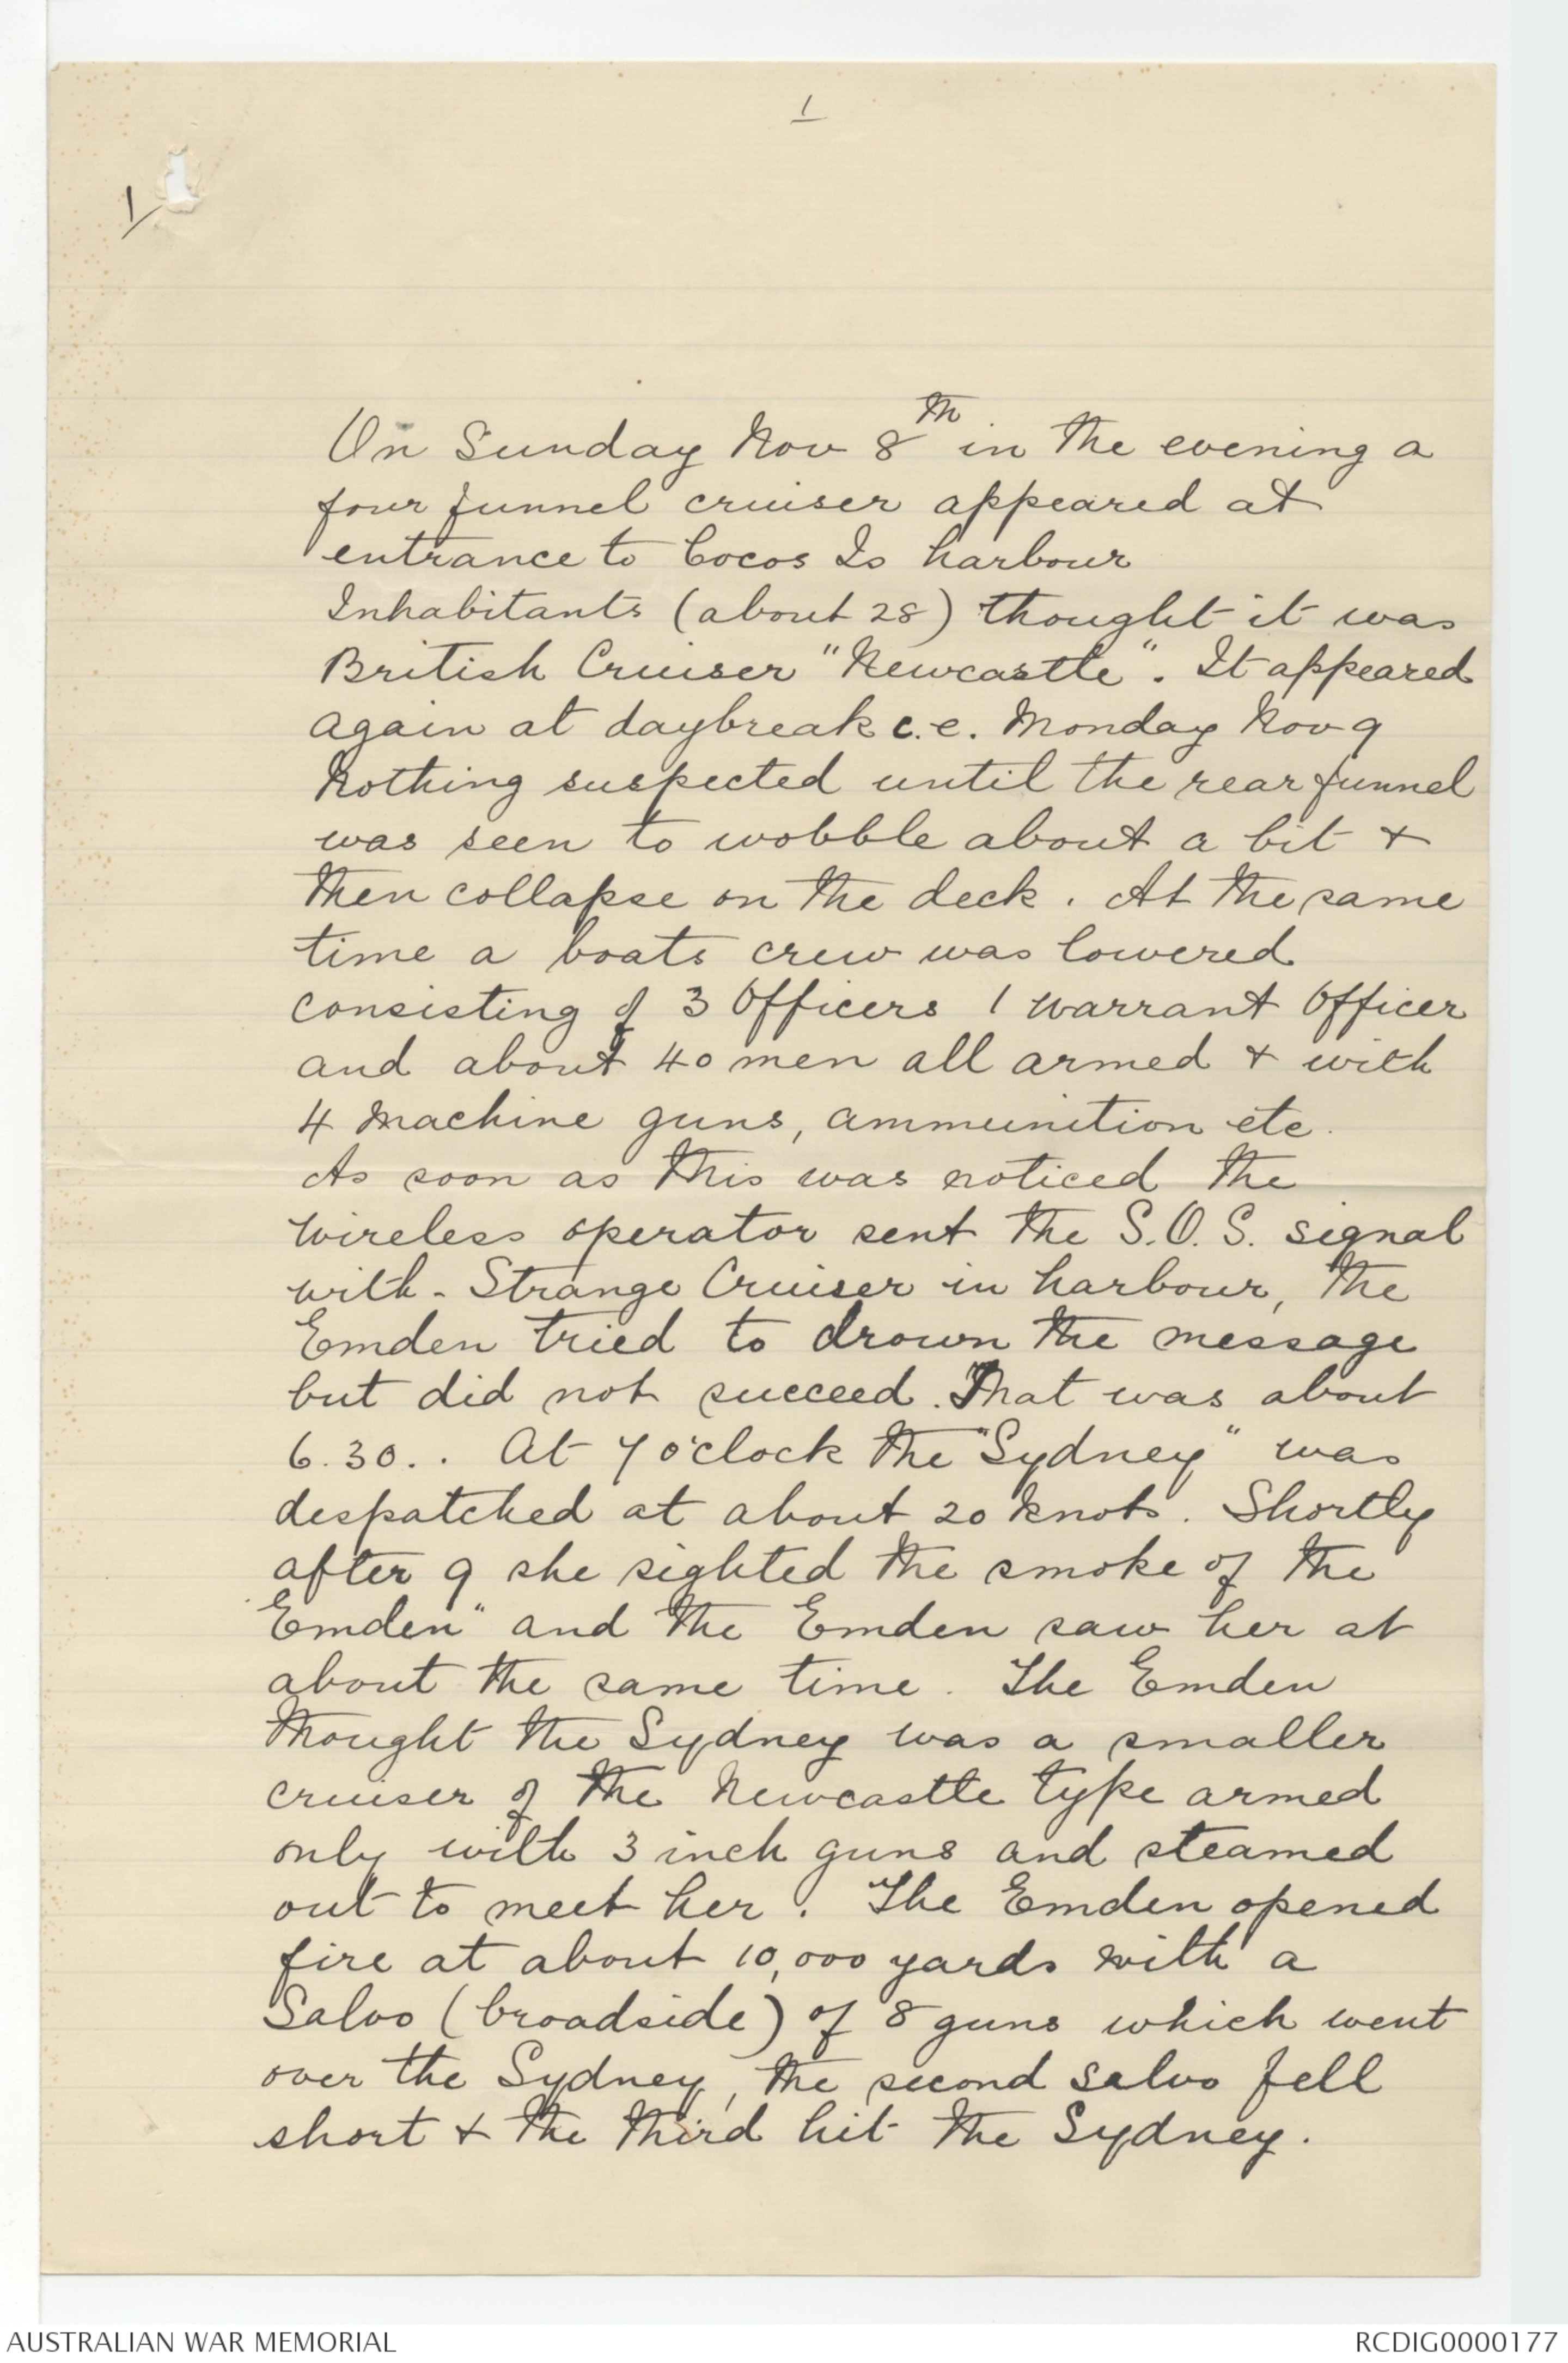 1
1/
On Sunday Nov 8th in the evening a
four funnel cruiser appeared at
entrance to Cocos Is harbour
Inhabitants (about 28) thought it was
British Cruiser "Newcastle". It appeared
again at daybreak c.e. Monday Nov 9
Nothing suspected until the rear funnel
was seen to wobble about a bit +
then collapse on the deck. At the same
time a boats crew was lowered
consisting of 3 Officers 1 Warrant Officer
and about 40 men all armed + with
4 Machine guns, ammunition etc.
As soon as this was noticed the
Wireless operator sent the S.O.S. signal
with - Strange Cruiser in harbour, the
Emden tried to drown the message
but did not succeed. That was about
6.30.. At 7 o'clock the "Sydney" was
despatched at about 20 knots. Shortly
after 9 she sighted the smoke of the
"Emden" and the Emden saw her at
about the same time. The Emden
thought the Sydney was a smaller
cruiser of the Newcastle type armed
only with 3 inch guns and steamed
out to meet her. The Emden opened
fire at about 10,000 yards with a
Salvo (broadside) of 8 guns which went
over the Sydney, the second salvo fell
short + the third hit the Sydney.
AUSTRALIAN WAR MEMORIAL
RCDIG0000177